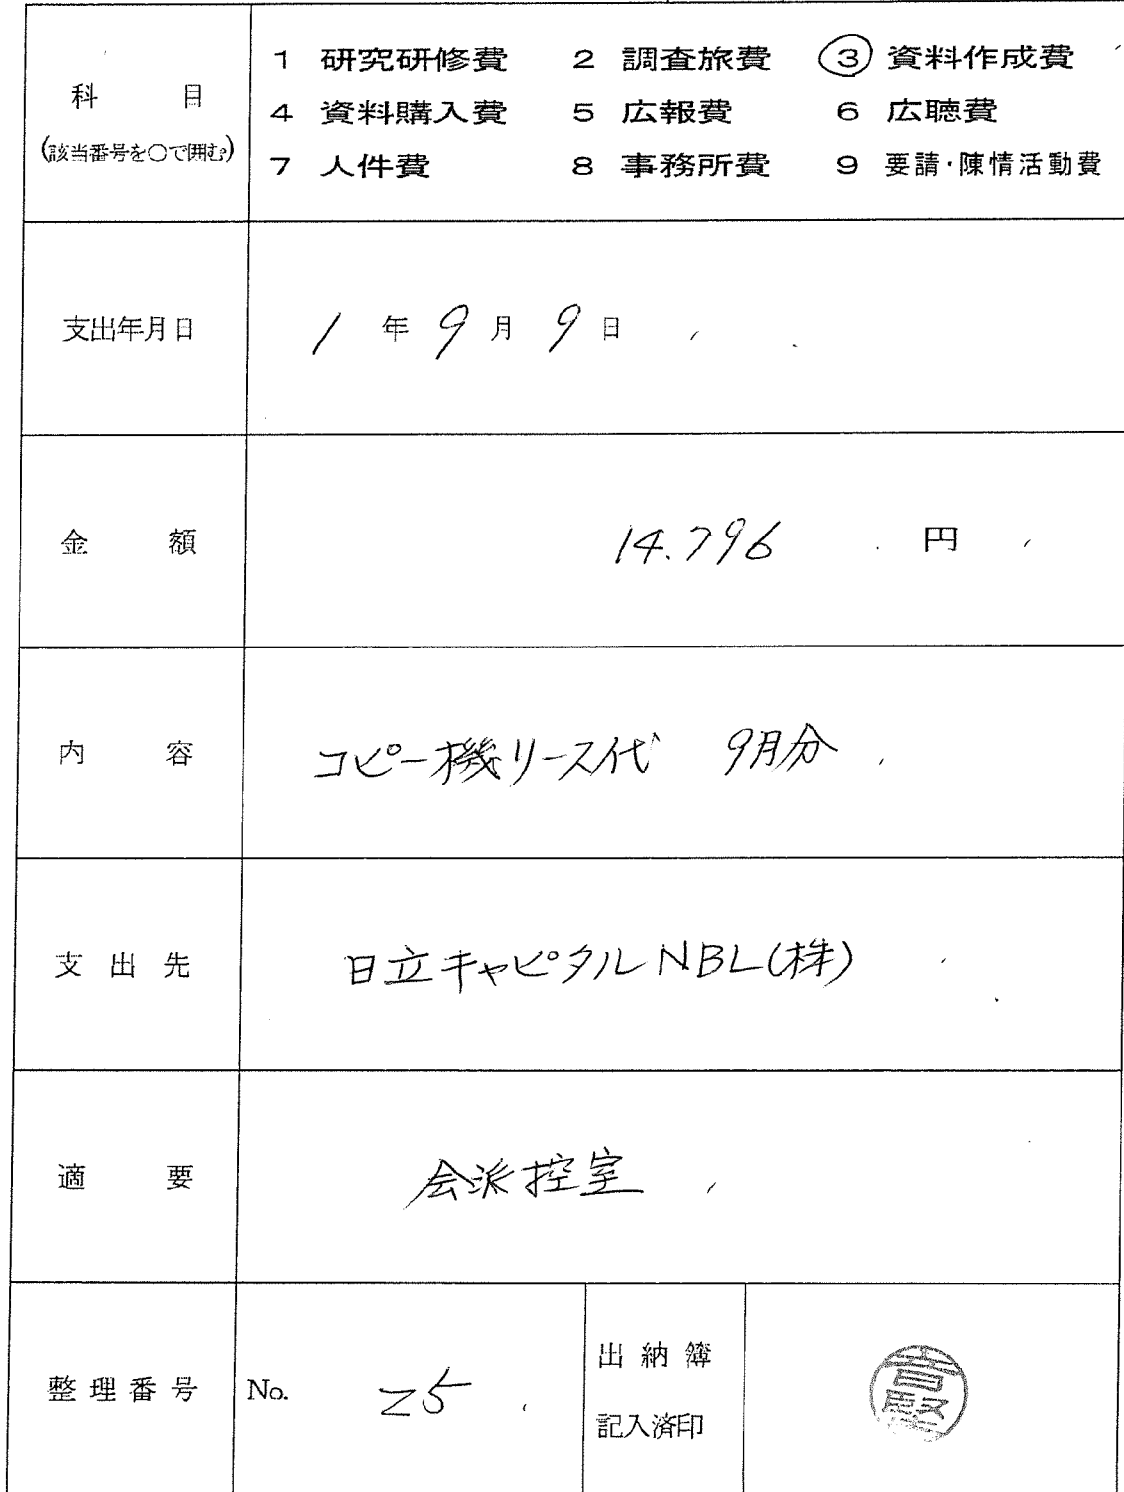 科目 1 研究研修費 2 調査旅費 ③ 資料作成費
4 資料購入費 5 広報費 6 広聴費
(該当番号を○で囲む) 7 人件費 8 事務所費 9 要請・陳情活動費
支出年月日 1 年 9 月 9 日
金額 14.796 円
内容 コピー機リース代 9月分
支出先 日立キャピタルNBL(株)
適要 会派控室
整理番号 No. 25 出納簿
記入済印